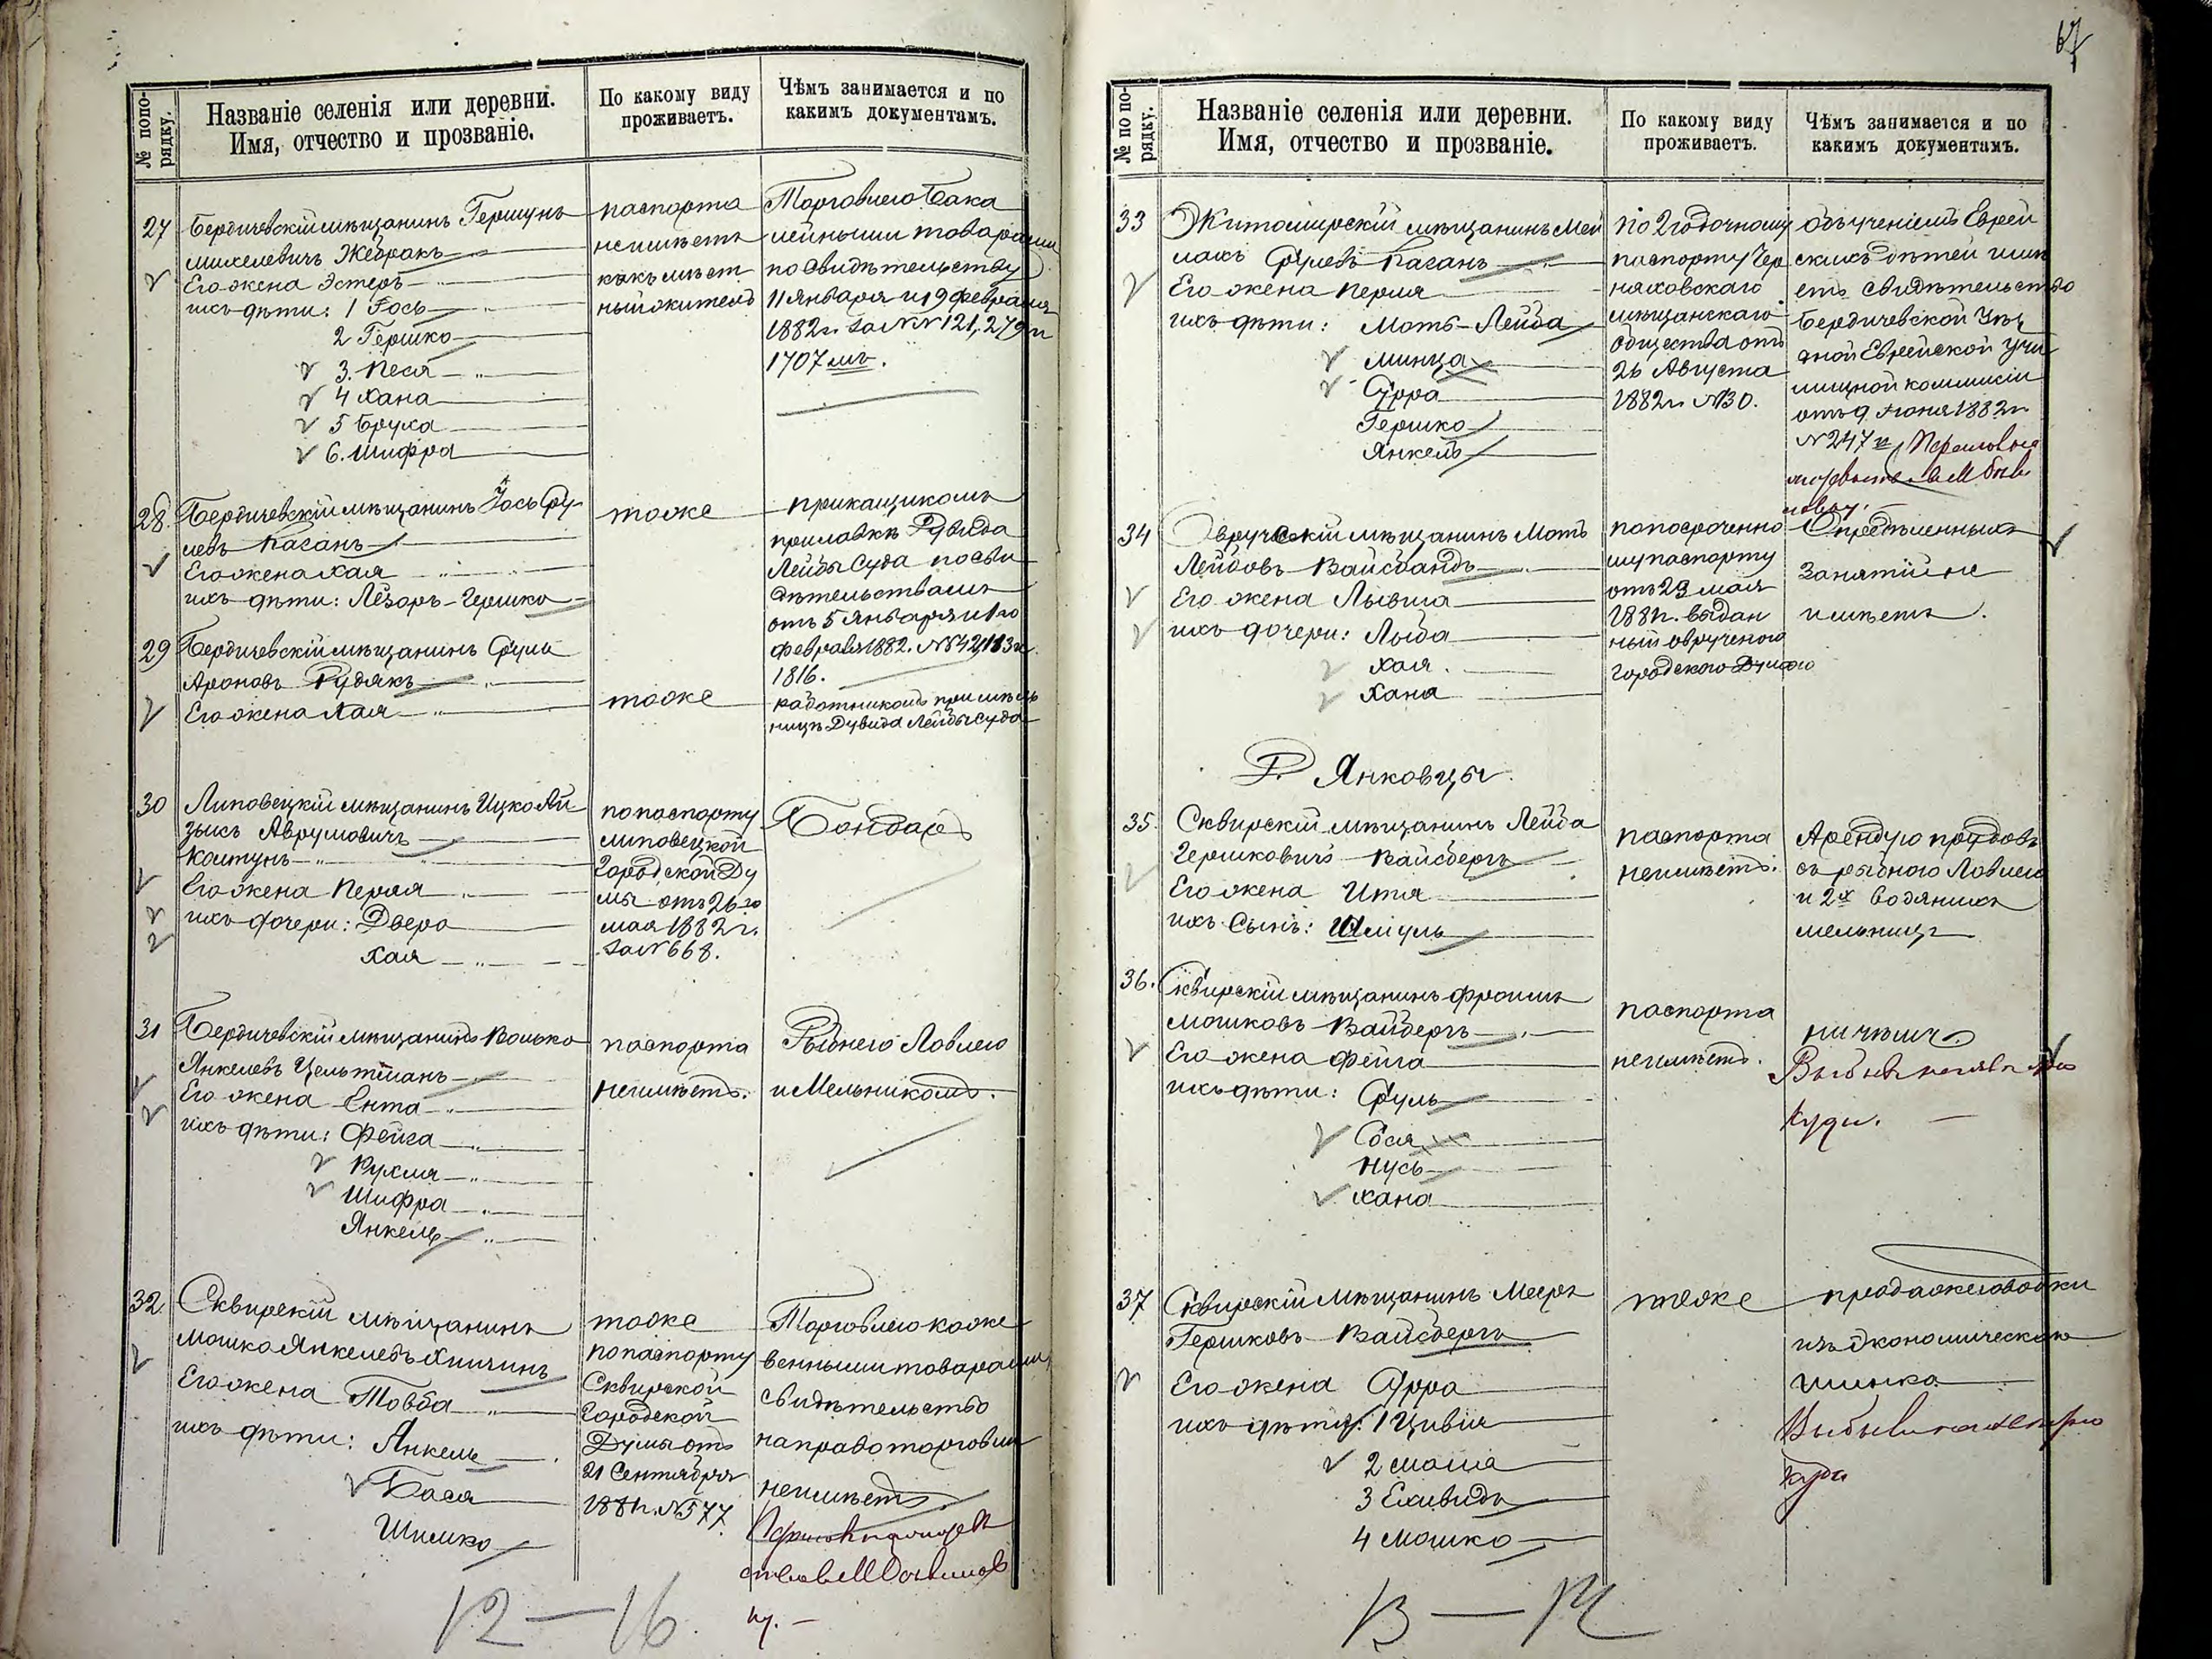 № попо-
рядку.
Названіе селенія или деревни.
Имя, отчество и прозваніе.
По какому виду
проживаетъ.
Чѣмъ занимается и по
какимъ документамъ.
27 Бердичевскій мѣщанинъ Гершунъ
Михелевичъ Жебракъ
Его жена Эстеръ
ихъ дѣти: 1 Іось
2 Гершко
3. Песя
4 Хана
5 Бруха
6. Шифра
паспорта
неимѣетъ
какъ мѣст
ный житель
Торговлею Бака
лейными товарами
по свидѣтельству
11 Января и 19 февраля
1882 г. за №№ 121, 279 и
1707 мъ.
28. Бердичевскій мѣщанинъ Іось Сру-
левъ Каганъ
Его жена Хая
ихъ дѣти: Лезоръ-Гершко
тоже
прикащикомъ
прилавкѣ Дувида
Лейбы Суда посви
дѣтельствамъ
отъ 5 Января и 1го
февраля 1882. №
1816.
29 Бердичевскій мѣщанинъ Сруль
Ароновъ Рудякъ
Его жена Хая
тоже
работникомъ при мѣль
ницѣ Дувида Лейбы Суда
30 Липовецкій мѣщанинъ Ицко Ай
зыкъ Аврумовичъ
Колтунъ
Его жена Перля
ихъ дочери: Двера
Хая
попаспорту
липовецкой
Городской Ду
мы отъ 26го
мая 1882 г.
за № 668.
Бондарь
31 Бердичевскій мѣщанинъ Волько
Янкелевъ Цельтманъ
Его жена Ента
ихъ дѣти: Фейга
Рухля
Шифра
Янкель
паспорта
неимѣетъ.
Рыбнего Ловлею
и Мельникомъ.
32. Сквирскій мѣщанинъ
Мошко Янкелевъ
Его жена Товба
ихъ дѣти: Янкель
Бася
Шимко
тоже
попаспорту
Сквирской
Городской
Думы отъ
21 Сентября
1881 г. № 577.
Торговлею коже
венными товарами,
свидѣтельство
на право торговли
неимѣетъ.
12 — 16
67
№ по по-
рядку.
Названіе селенія или деревни.
Имя, отчество и прозваніе.
По какому виду
проживаетъ.
Чѣмъ занимается и по
какимъ документамъ.
33 Житомирскій мѣщанинъ Мей
лахъ Срулевъ Каганъ
Его жена Перля
ихъ дѣти: Мотъ-Лейба
Минца
Сурра
Гершко
Янкель
По 2 годочному
паспорту Чер
няховскаго
мѣщанскаго
общества отъ
26 Августа
1882 г. № 30.
Обученіемъ Еврей
скихъ дѣтей имѣ
етъ свидѣтельство
Бердичевской Уѣз
дной Еврейской Учи
лищной коммисіи
отъ 9 Іюня 1882 г.
№ 247
34 Овручскій мѣщанинъ Мотъ
Лейбовъ Вайсбандъ
Его жена Лывша
ихъ дочери: Лыба
Хая.
Хана
попосроченно
му паспорту
отъ 23 мая
1881 г. выдан
ный овручского
Городского Думою
Опредѣленныхъ
занятій не
имѣетъ.
Р. Янковцы.
35. Сквирскій мѣщанинъ Лейба
Гершковичъ Вайсбергъ
Его жена Итя
ихъ сынъ: Шмуль
паспорта
неимѣетъ.
Арендую прудовъ
съ рыбного Ловлею
и 2х водяныхъ
мельницъ
36. Сквирскій мѣщанинъ Фроимъ
Мошковъ Вайбергъ
Его жена Фейга
ихъ дѣти: Сруль
Бося
Нусь
Хана
паспорта
неимѣетъ.
ничѣмъ.
куда.
37 Сквирскій мѣщанинъ Мееръ
Гершковъ Вайсбергъ
Его жена Сурра
ихъ дѣти: 1 Цивія
2 Маша
3
4 Мошко
тоже
продажеюводки
изъ экономическаго
шинка
куда